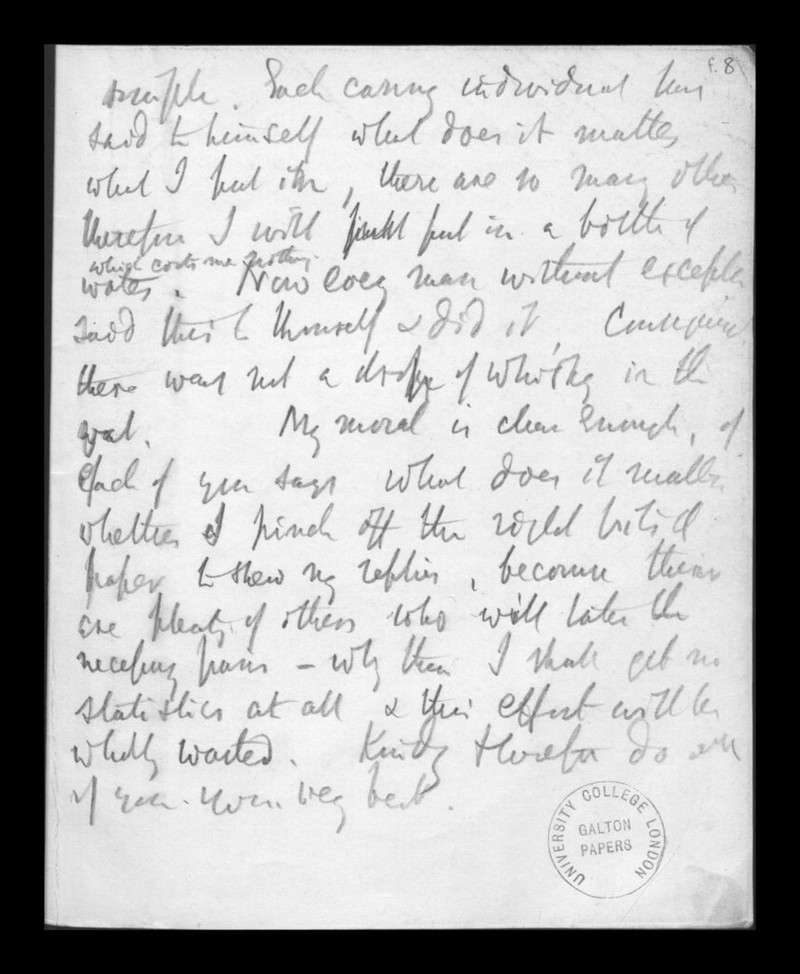 f. 8
simple. Each caring individual has
said to himself what does it matter
what I put in, there are so many others
therefore I will put in a bottle of
which costs me nothing.
water. Now every man without exception
said this to himself & did it.
there was not a drop of whisky in the
vat. My moral is clear enough, if
Each of you says what does it matter
whether I pinch off the right bits of
paper to shew my replies, because there
are plenty of others who will take the
necessary pains – why then I shall get no
statistics at all & this effort will be
wholly wasted. Kindly therefore do all
of you your very best.
UNIVERSITY COLLEGE LONDON
GALTON
PAPERS